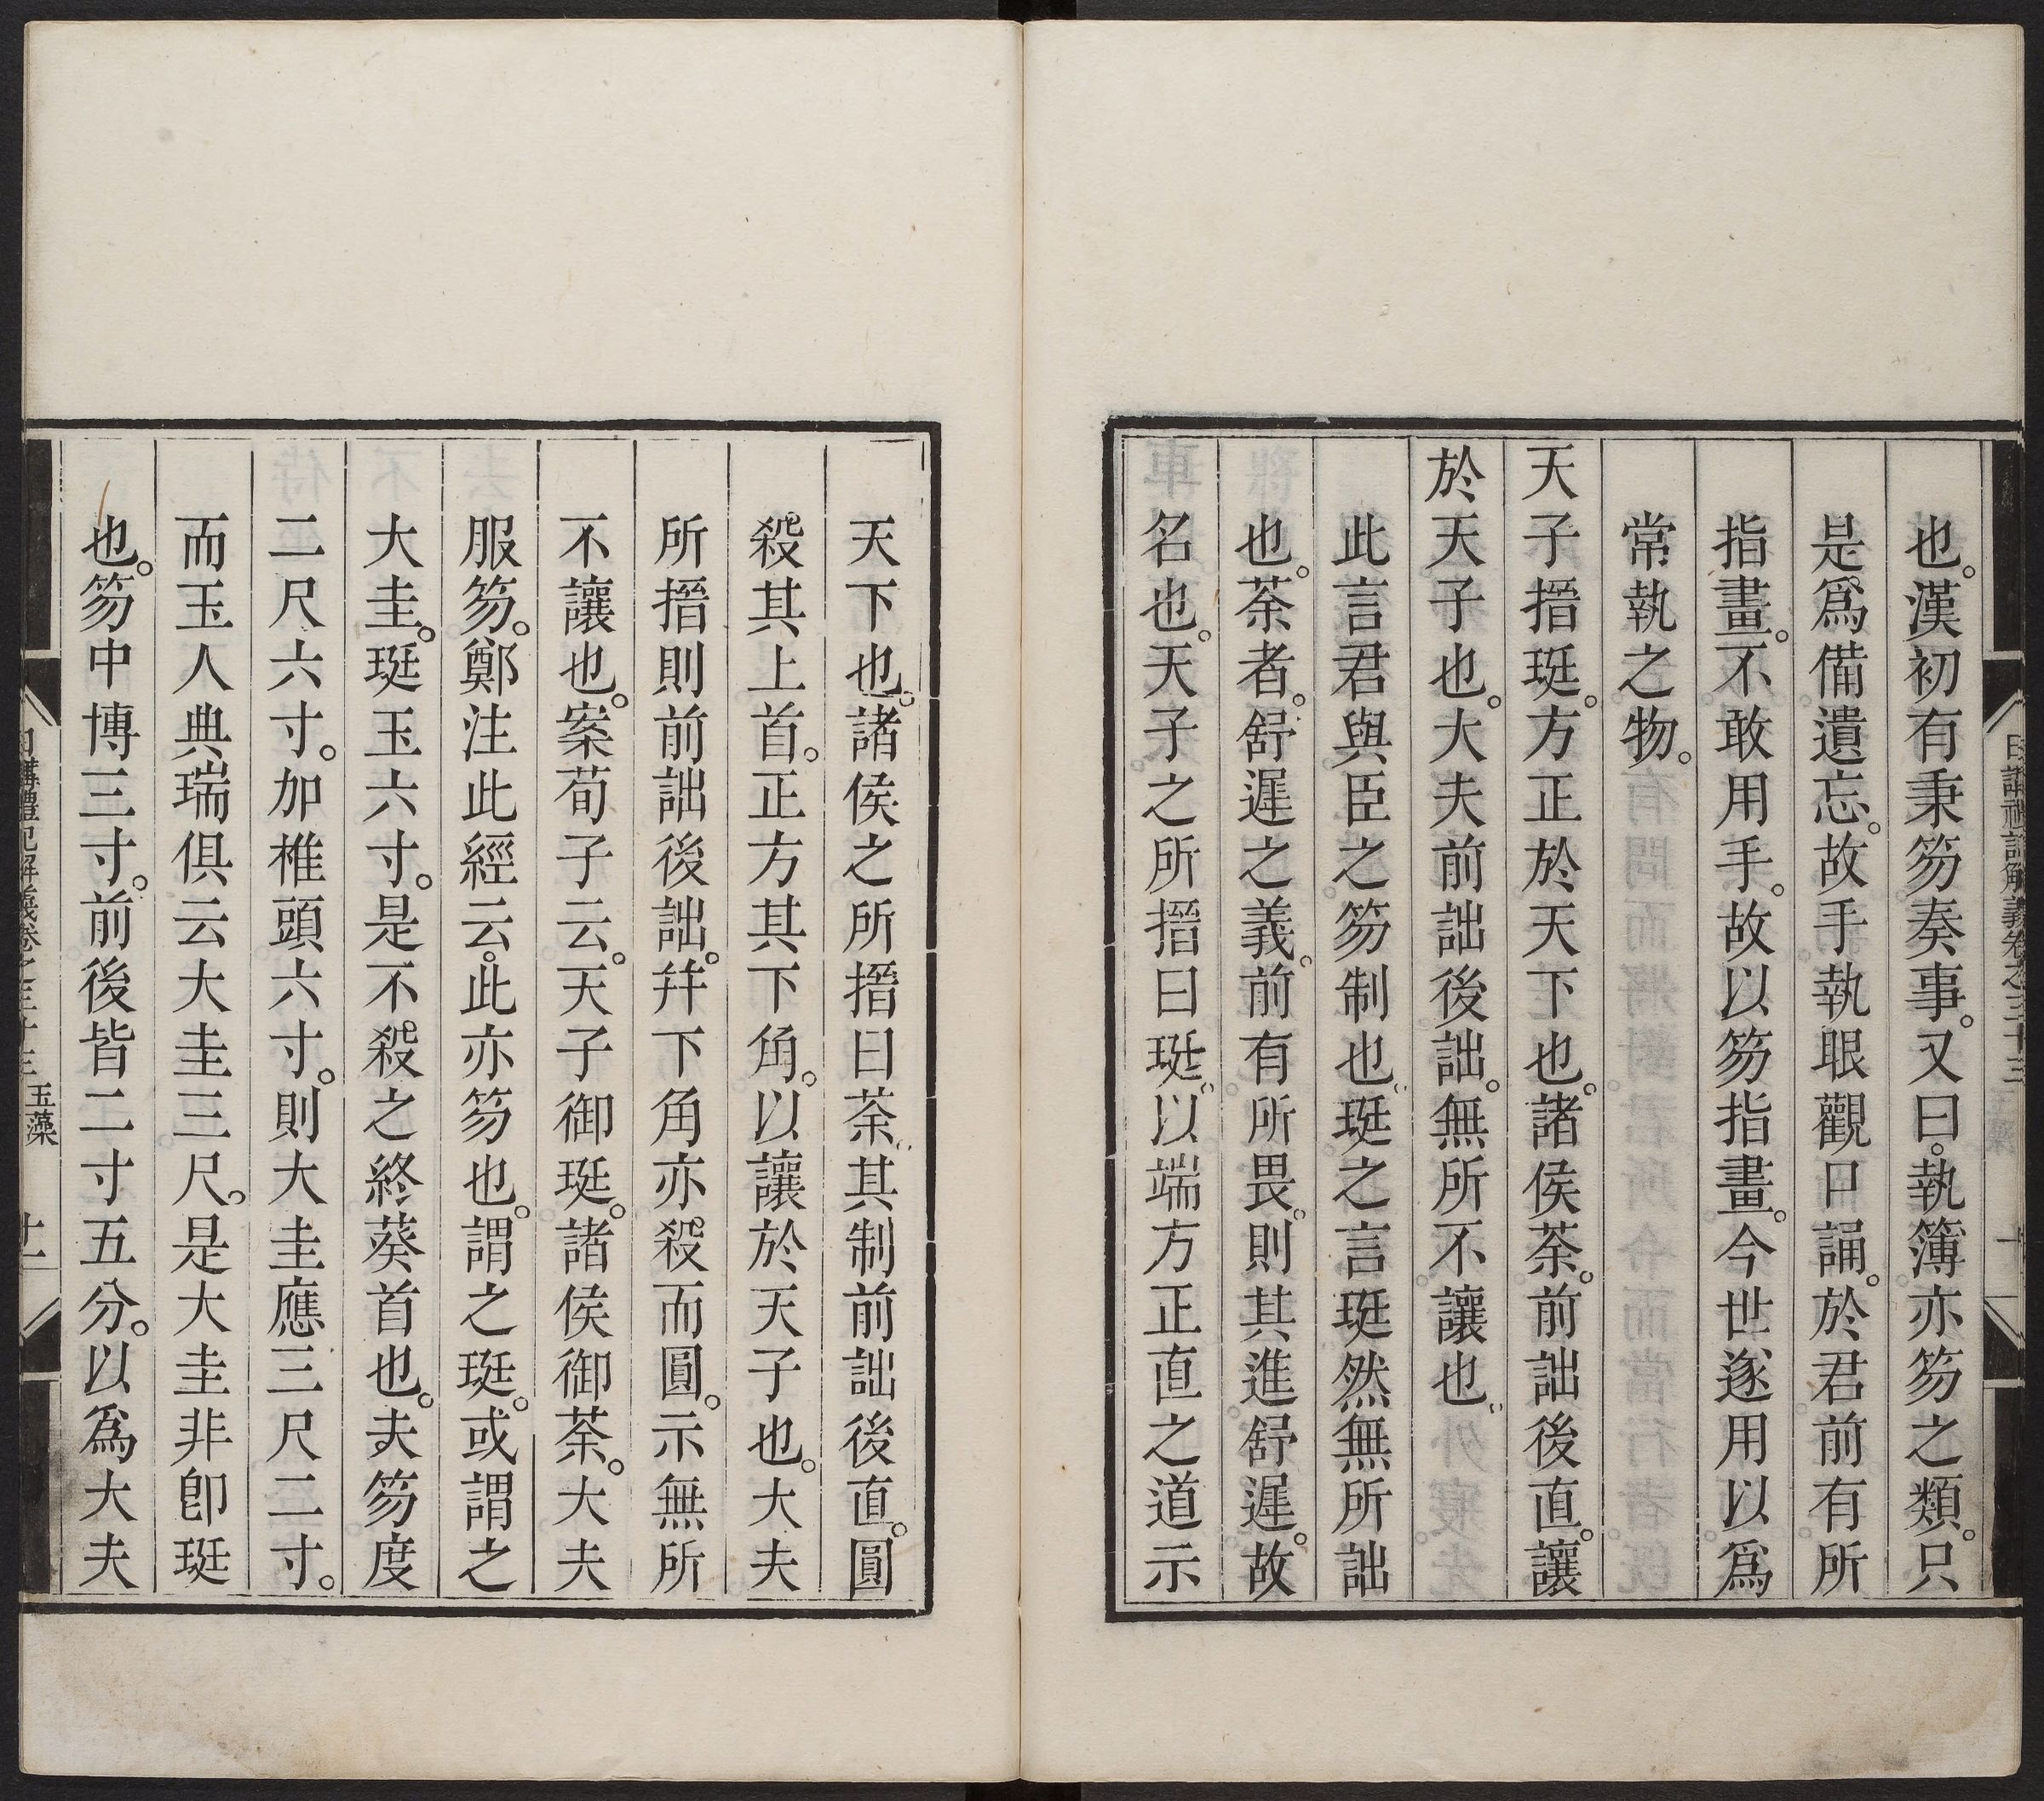 日講禮記解義卷之三十三
也。漢初有秉笏奏事。又曰。執簿亦笏之類。只
是爲備遺忘。故手執眼觀口誦。於君前有所
指畫。不敢用手。故以笏指畫。今世遂用以爲
常執之物。
天子搢珽。方正於天下也。諸侯荼。前詘後直。讓
於天子也。大夫前詘後詘。無所不讓也。
此言君與臣之笏制也。珽之言珽然無所詘
也。荼者。舒遲之義。前有所畏。則其進舒遲。故
名也。天子之所搢曰珽。以端方正直之道示
天下也。諸侯之所搢曰荼。其制前詘後直。圓
殺其上首。正方其下角。以讓於天子也。大夫
所搢則前詘後詘。幷下角亦殺而圓。示無所
不讓也。案荀子云。天子御珽。諸侯御荼。大夫
服笏。鄭注此經云。此亦笏也。謂之珽。或謂之
大圭。珽玉六寸。是不殺之終葵首也。夫笏度
二尺六寸。加椎頭六寸。則大圭應三尺二寸。
而玉人典瑞俱云大圭三尺。是大圭非卽珽
也。笏中博三寸。前後皆二寸五分。以爲大夫
日講禮記解義卷之三十三 玉藻 十一